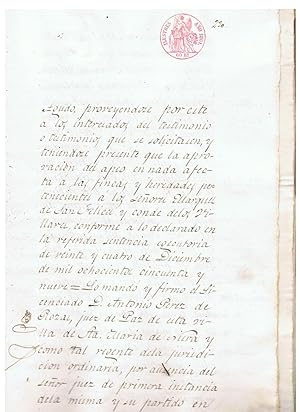 Aoudo, proveyendose por este
a los interesados del testimonio
o testimonios que se solicitasen, y
teniendose presente que la apro-
vacion del apeo en nada afec-
ta á las fincas y heredades per-
tenecientes a los Señores Marques
de San Felices y conde de los Vi-
llares, conforme a lo declarado en
la referida sentencia ejecutoria
de veinte y cuatro de Diciembre
de mil ochocientos cincuenta y
nueve = Lo mando y firmo el Li-
cenciado D. Antonio Perez de
Rozas, juez de Paz de esta vi-
lla de Sta. Maria de Nieva y
como tal regente de la jurisdi-
cion ordinaria, por ausencia del
señor juez de primera instancia
de la misma y su partido en